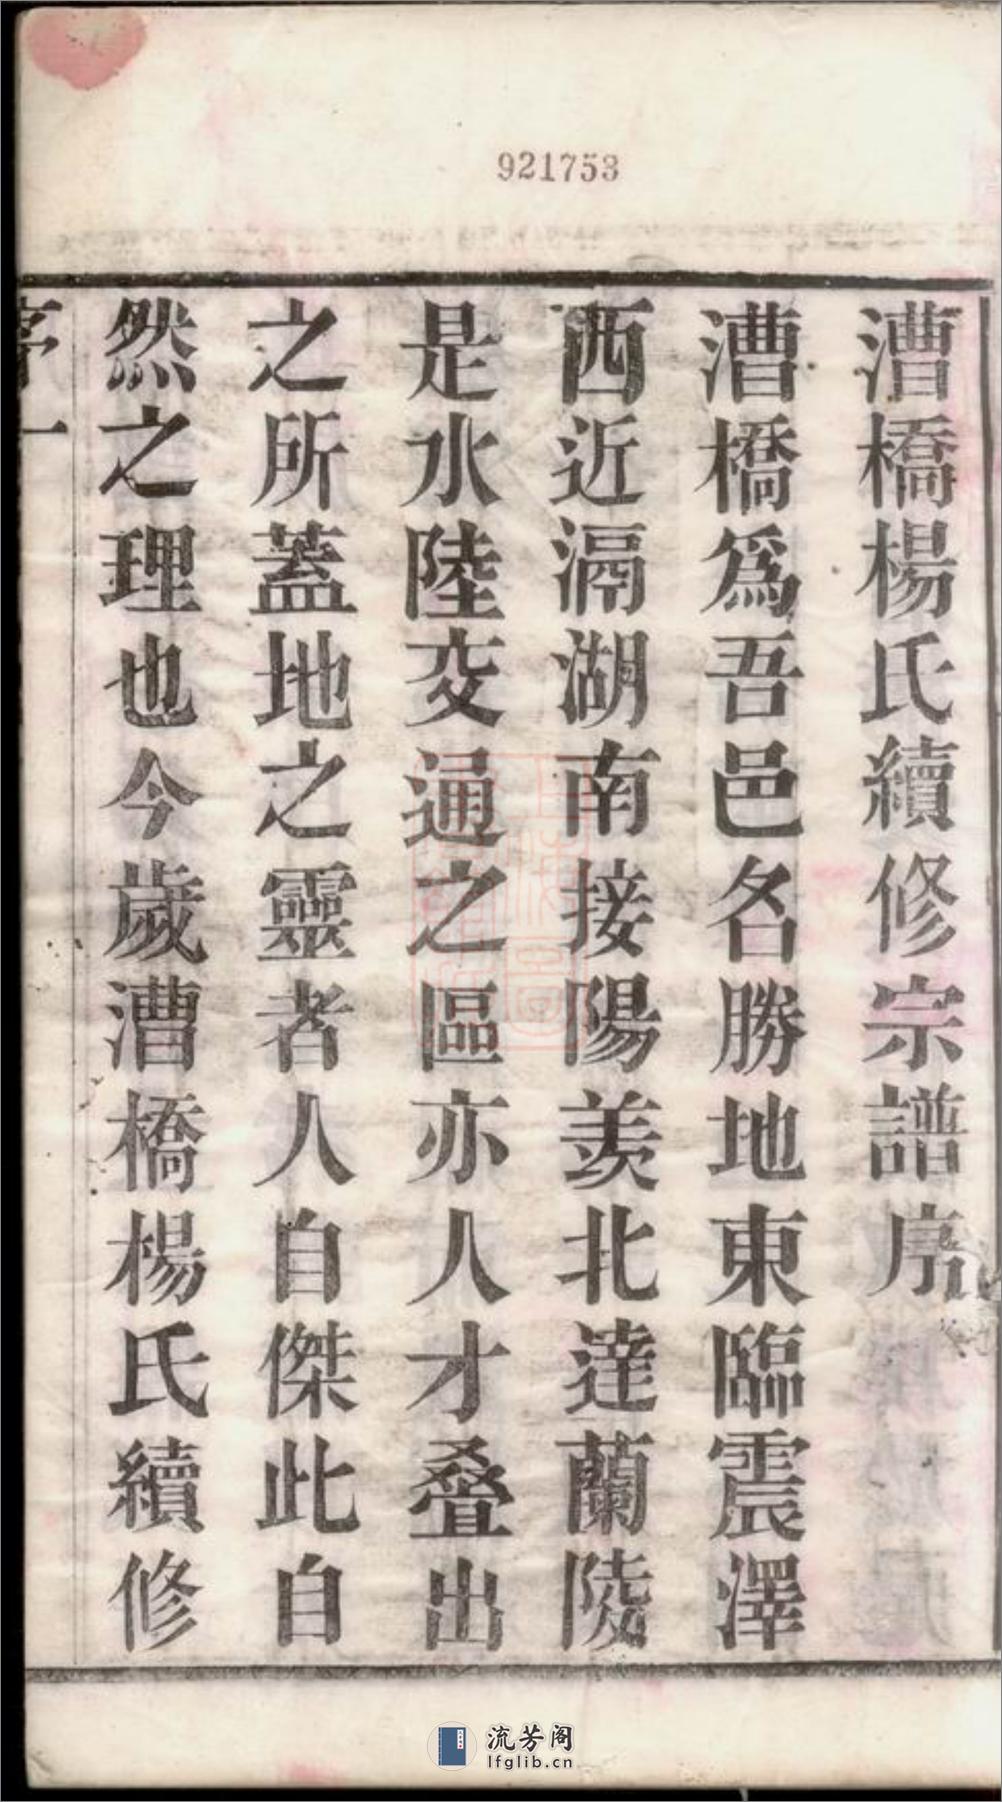 921753
漕橋楊氏續修宗譜序
漕橋爲吾邑名勝地東臨震澤
西近滆湖南接陽羨北達蘭陵
是水陸交通之區亦人才叠出
之所蓋地之靈者人自傑此自
然之理也今歲漕橋楊氏續修
序一
流芳阁
lfglib.cn